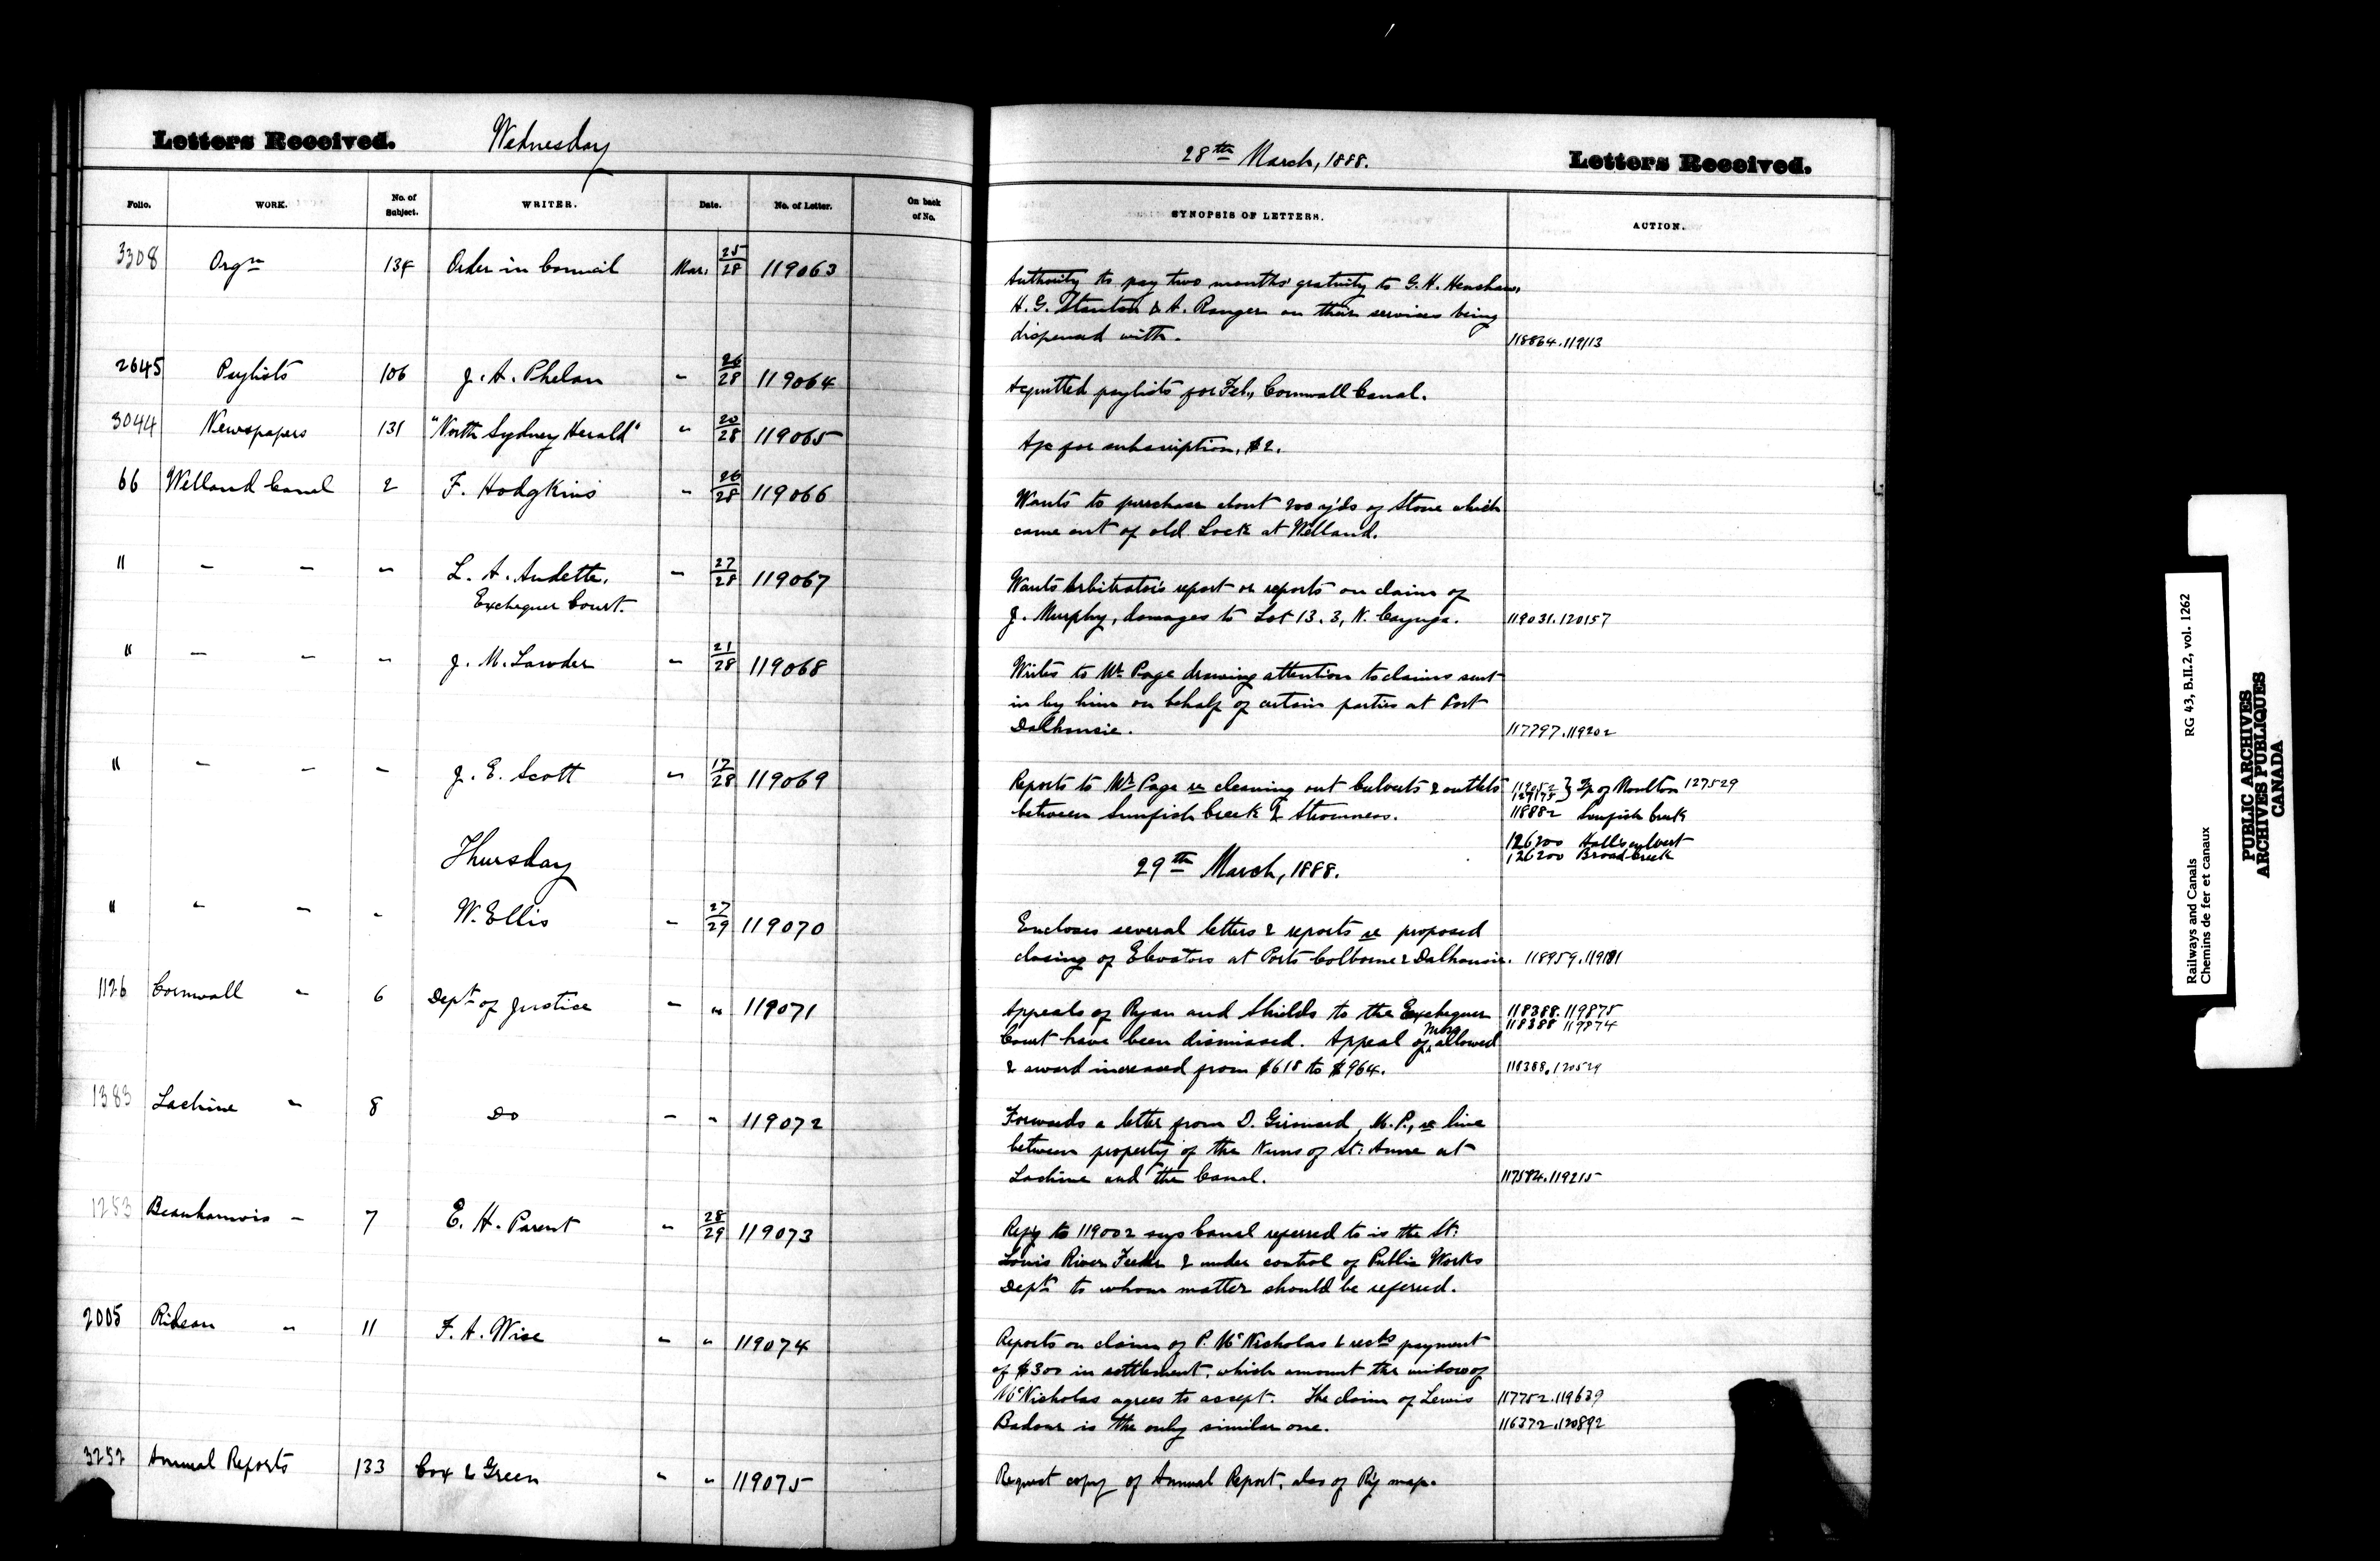 Letters Received. Wednesday 28th March, 1888. Letters Received.
Folio. WORK. No. of Subject. WRITER. Date. No. of Letter. On back of No. SYNOPSIS OF LETTERS. ACTION.
3308 Orgn 134 Order in Council Mar. 25/28 119063 Authority to pay two months' gratuity to G. H. Henshaw,
H. G. Stanton & A. Ranger on their services being
dispensed with. 118864.119113
2645 Paylists 106 J. A. Phelan " 26/28 119064 Acquitted paylists for Feb., Cornwall Canal.
3044 Newspapers 131 "North Sydney Herald" " 20/28 119065 A/c for subscription, $2.
66 Welland Canal 2 F. Hodgkins " 26/28 119066 Wants to purchase about 200 y'ds of Stone which
came out of old Lock at Welland.
" " " " L. A. Audette, " 27/28 119067 Wants Arbitrator's report or reports on claim of
Exchequer Court. J. Murphy, damages to Lot 13.3, N. Cayuga. 119031.120157
" " " " J. M. Lawder " 21/28 119068 Writes to Mr Page drawing attention to claims sent
in by him on behalf of certain parties at Port
Dalhousie. 117797.119202
" " " " J. E. Scott " 17/28 119069 Reports to Mr Page re cleaning out Culverts & outlets } Tp of Moulton 127529
between Sunfish Creek & Stromness. 118882 Sunfish Creek
126200 Halls culvert
126200 Broad Creek
Thursday 29th March, 1888.
" " " " W. Ellis " 27/29 119070 Encloses several letters & reports re proposed
closing of Elevators at Ports Colborne & Dalhousie. 118959.
1126 Cornwall " 6 Dept of Justice " " 119071 Appeals of Ryan and Shields to the Exchequer 118388.119875
118388 119874
Court have been dismissed. Appeal of allowed
& award increased from $618 to $964. 118388.120529
1383 Lachine " 8 Do " " 119072 Forwards a letter from D. Girouard, M.P., re line
between property of the Nuns of St. Anne at
Lachine and the Canal. 117584.119215
1253 Beauharnois " 7 E. H. Parent " 28/29 119073 Reply to 119002 says Canal referred to is the St.
Louis River Feeder & under control of Public Works
Dept to whom matter should be referred.
2005 Rideau " 11 F. A. Wise " " 119074 Reports on claim of P. McNicholas & recds payment
of $300 in settlement, which amount the widow of
McNicholas agrees to accept. The claim of Lewis 117752.119639
Badour is the only similar one. 116372.120892
3252 Annual Reports 133 Cox & Green " " 119075 Request copy of Annual Report, also of Ry map.
Railways and Canals RG 43, B.II.2, vol. 1262
Chemins de fer et canaux
PUBLIC ARCHIVES
ARCHIVES PUBLIQUES
CANADA